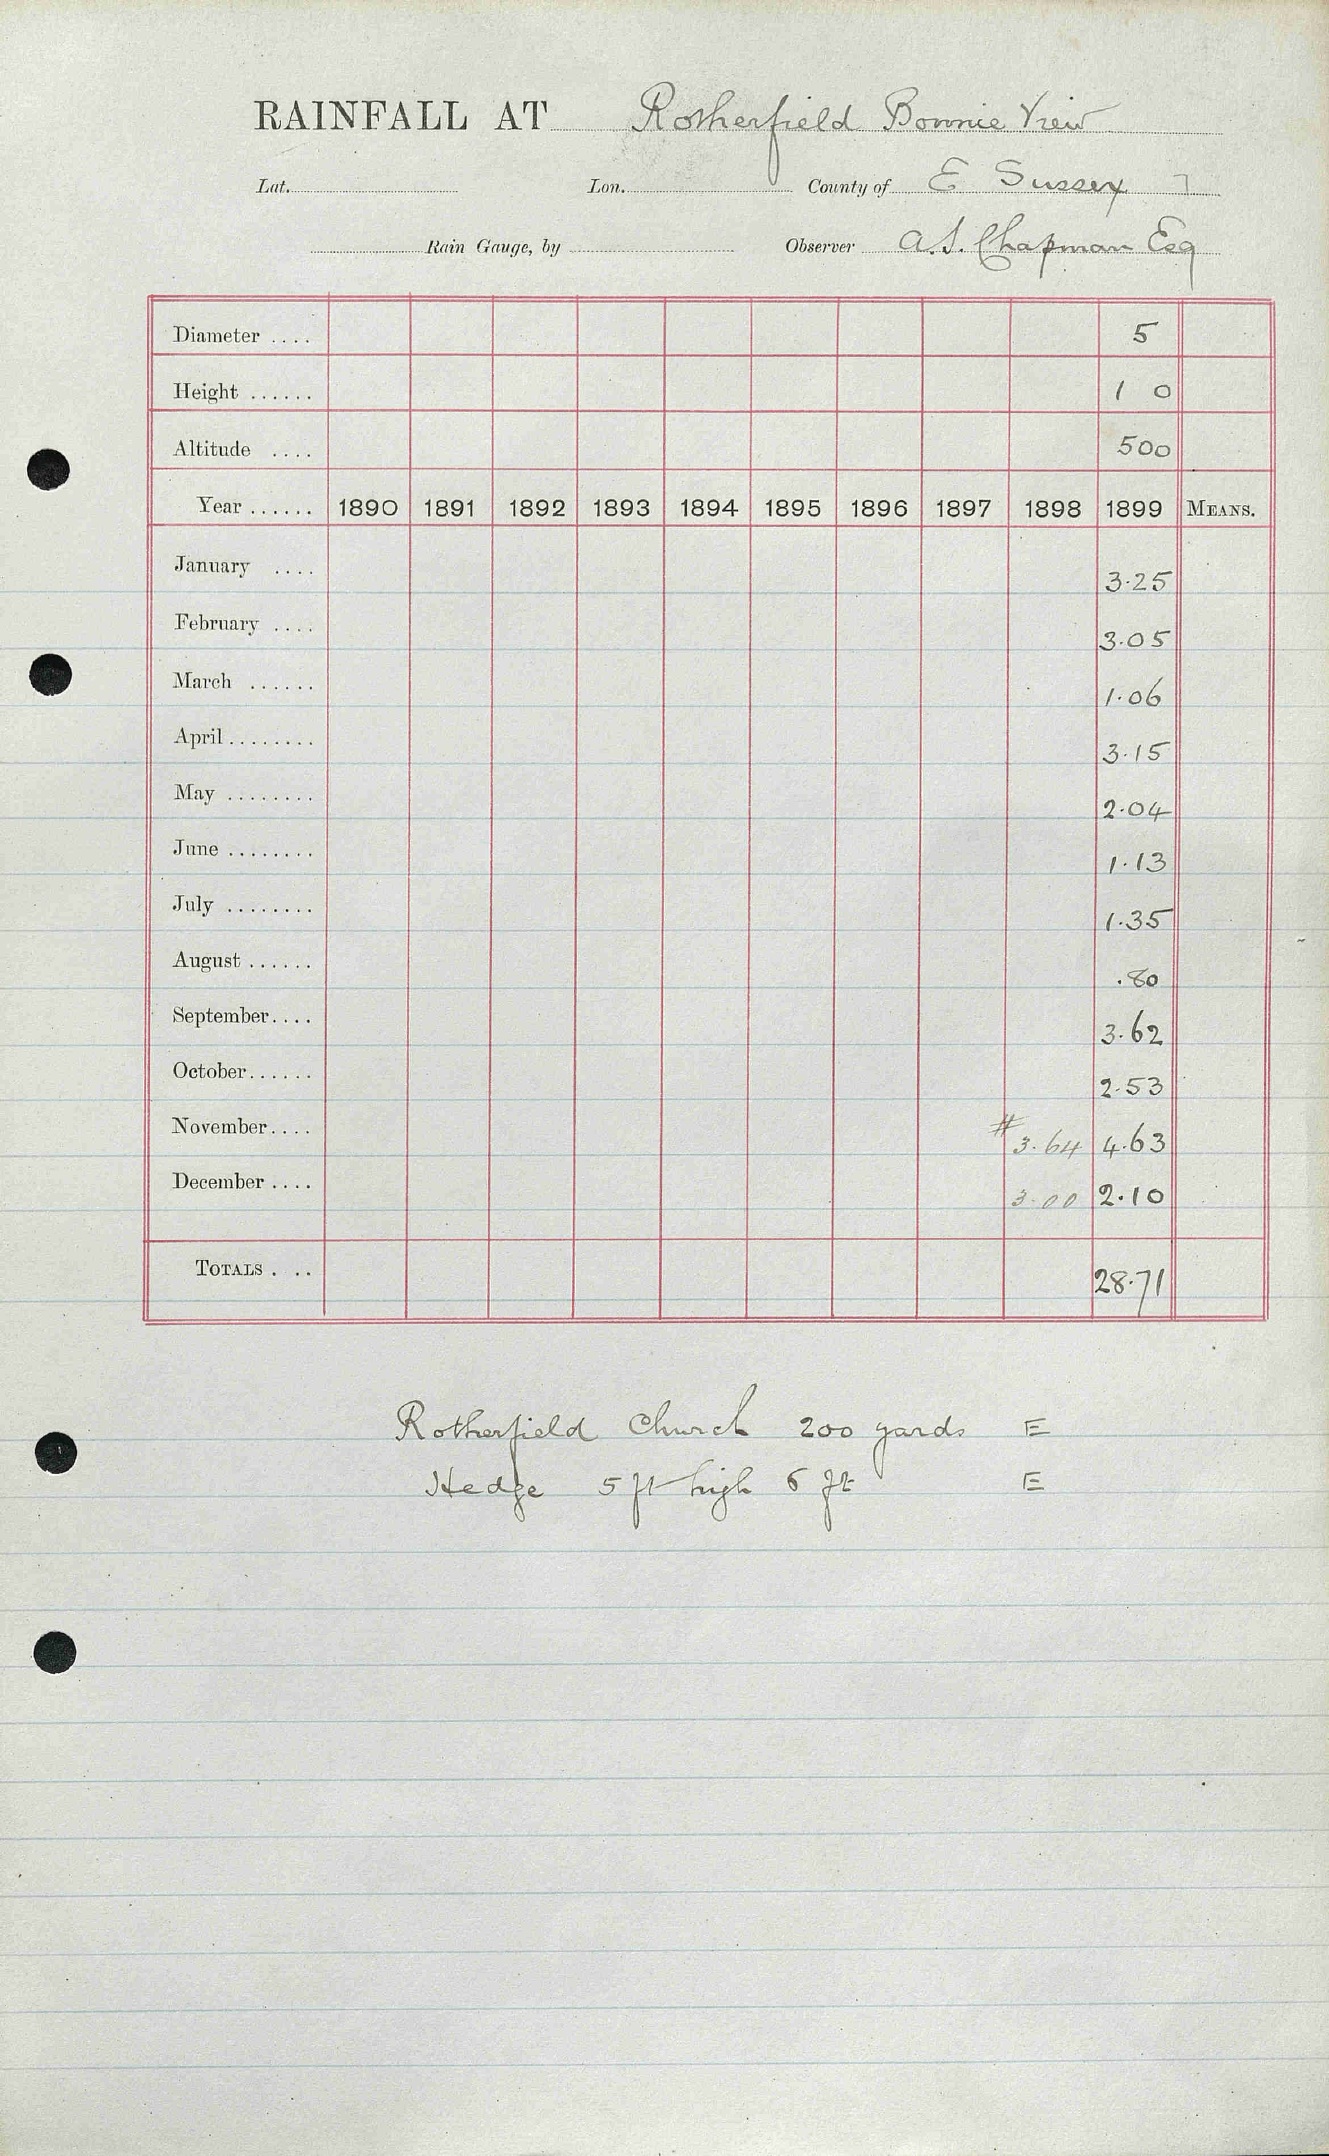 RAINFALL AT Rotherfield Bonnie View
Lat. Lon. County of E Sussex 7
Rain Gauge, by Observer A.S. Chapman Esq
Diameter .... 5
Height ...... 1 0
Altitude .... 500
Year ...... 1890 1891 1892 1893 1894 1895 1896 1897 1898 1899 MEANS.
January .... 3.25
February .... 3.05
March ...... 1.06
April ........ 3.15
May ........ 2.04
June ........ 1.13
July ........ 1.35
August ...... .80
September.... 3.62
October...... 2.53
November.... # 3.64 4.63
December .... 3.00 2.10
TOTALS . .. 28.71
Rotherfield Church 200 yards E
Hedge 5 ft high 6 ft E